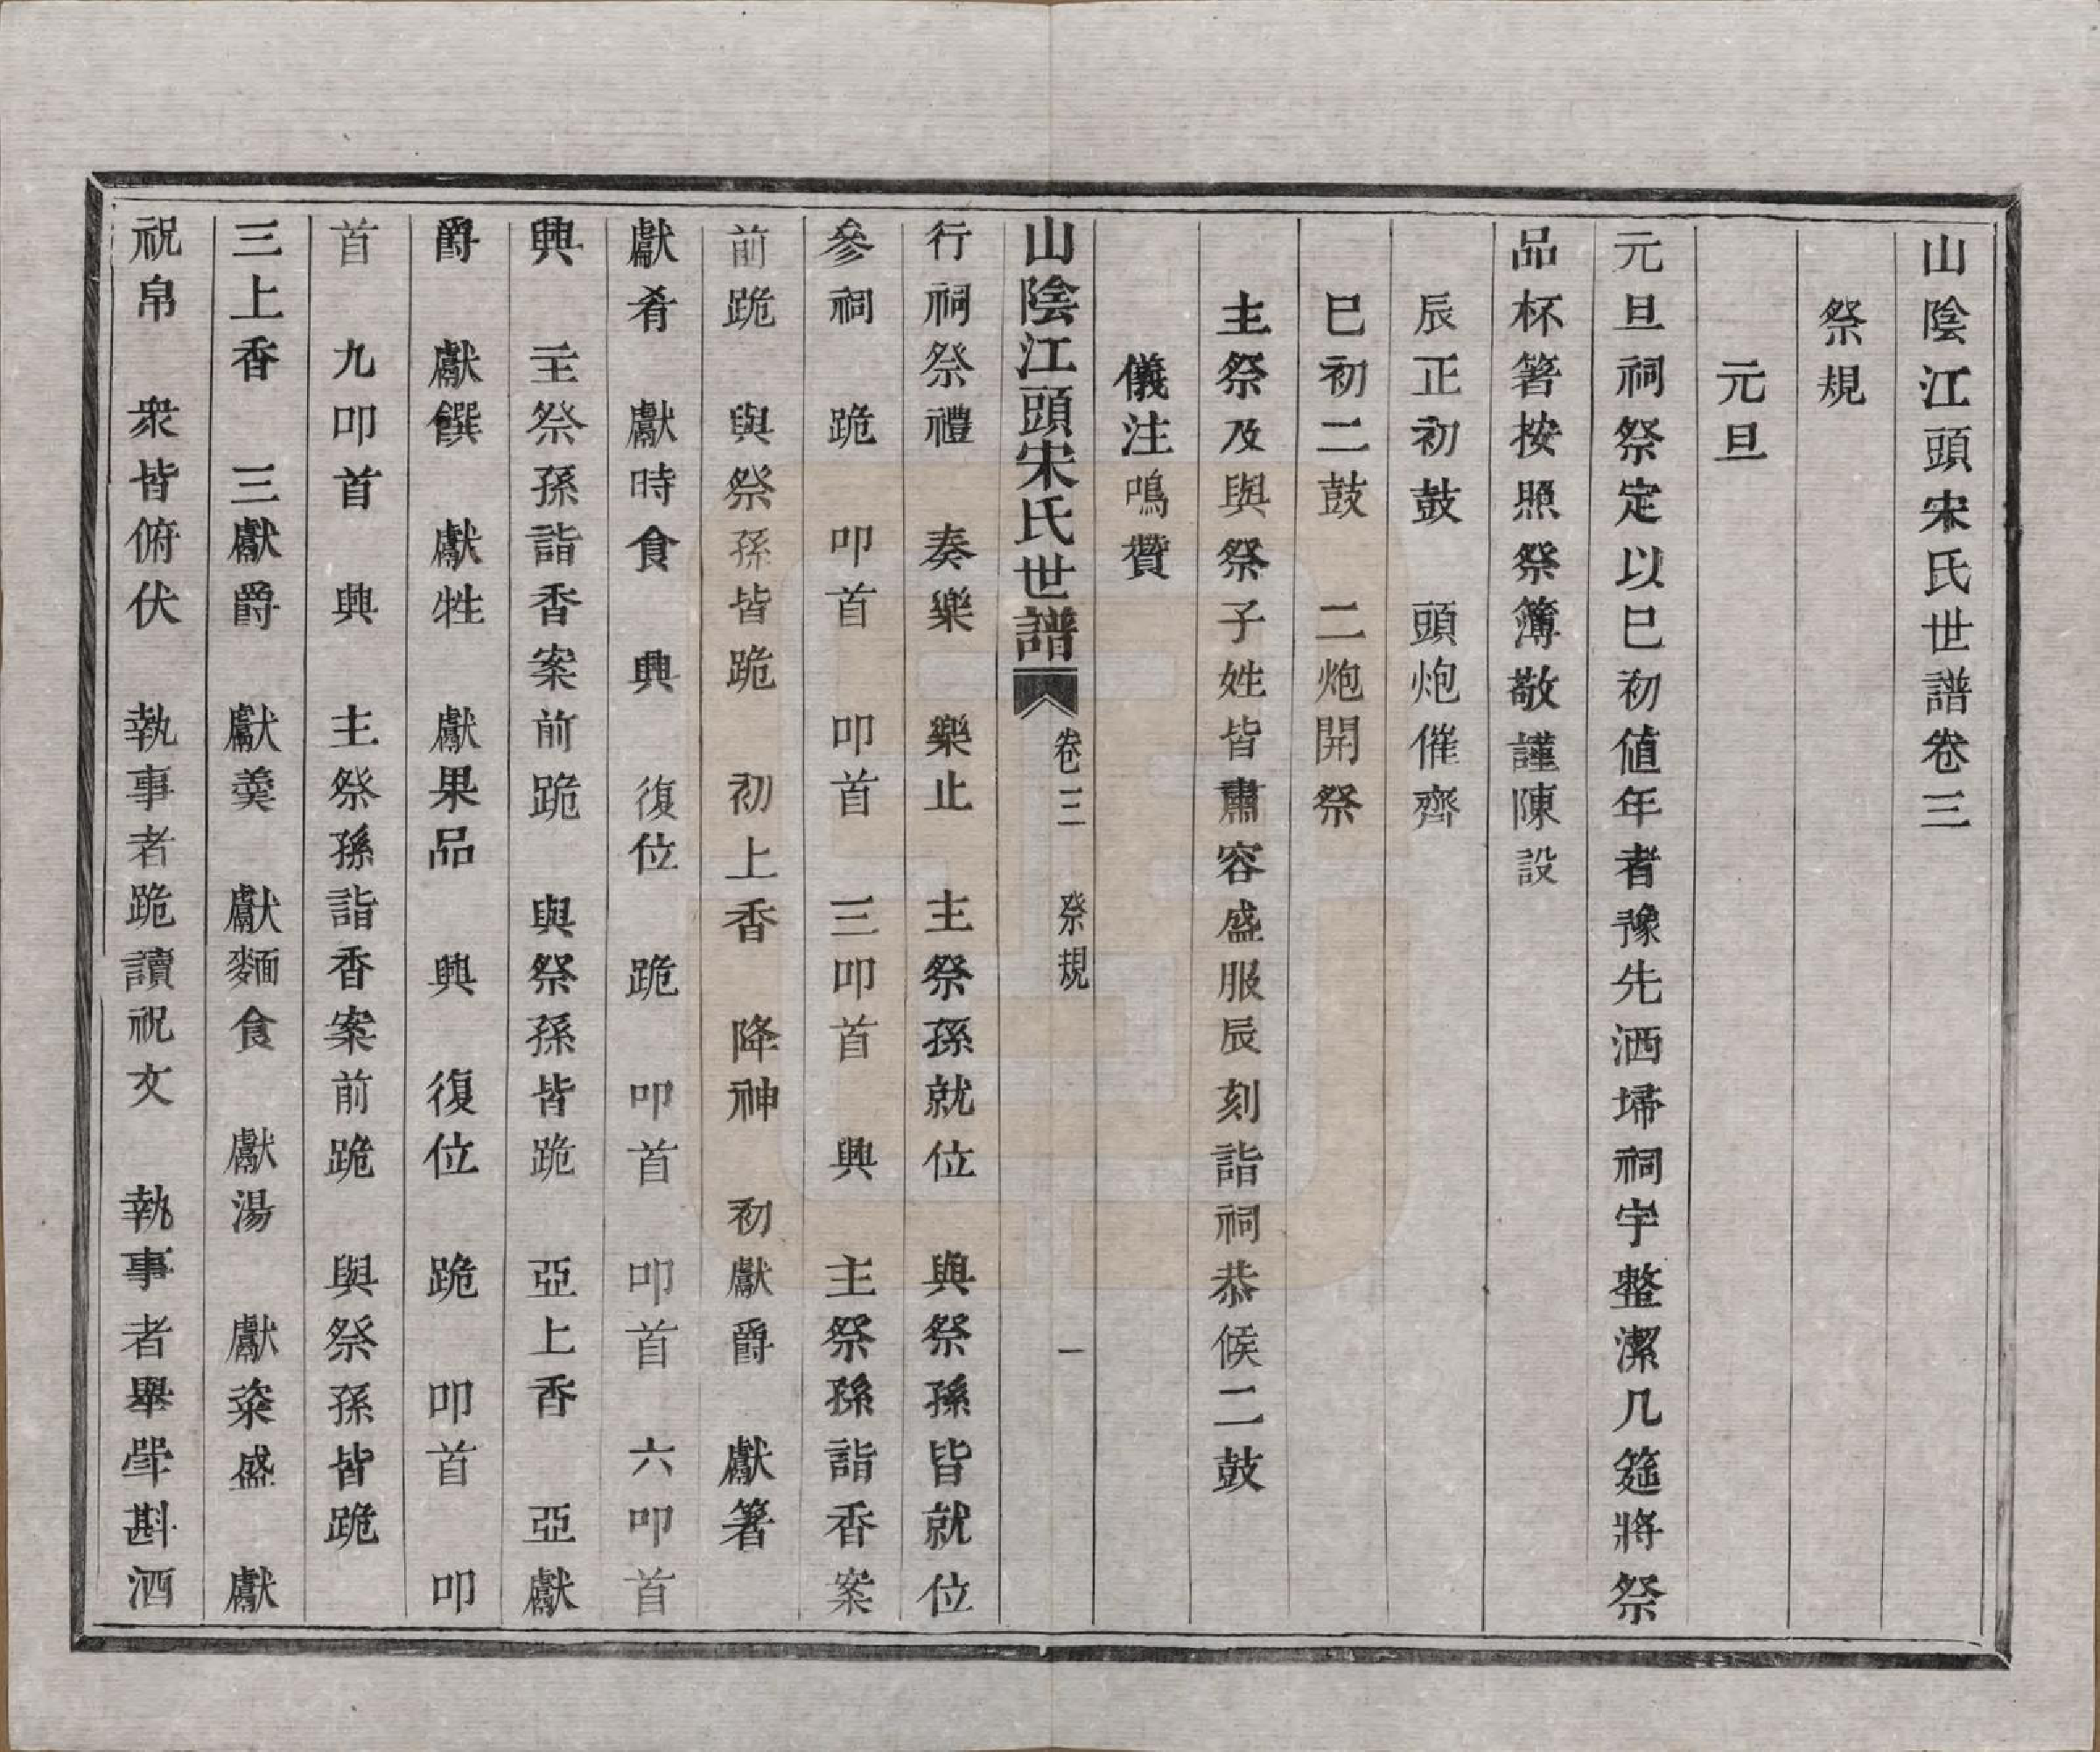 山陰江頭宋氏世譜卷三
祭規
元旦
元旦祠祭定以巳初値年者豫先洒埽祠宇整潔几筵將祭
品杯箸按照祭簿敬謹陳設
辰正初鼓　頭炮催齊
巳初二鼓　二炮開祭
主祭及與祭子姓皆肅容盛服辰刻詣祠恭候二鼓
儀注鳴贊
山陰江頭宋氏世譜　卷三　祭規　一
行祠祭禮　奏樂　樂止　主祭孫就位　與祭孫皆就位
參祠　跪　叩首　叩首　三叩首　興　主祭孫詣香案
前跪　與祭孫皆跪　初上香　降神　初獻爵　獻箸
獻肴　獻時食　興　復位　跪　叩首　叩首　六叩首
興　主祭孫詣香案前跪　與祭孫皆跪　亞上香　亞獻
爵　獻饌　獻牲　獻果品　興　復位　跪　叩首　叩
首　九叩首　興　主祭孫詣香案前跪　與祭孫皆跪
三上香　三獻爵　獻羹　獻麵食　獻湯　獻粢盛　獻
祝帛　衆皆俯伏　執事者跪讀祝文　執事者舉斝斟酒